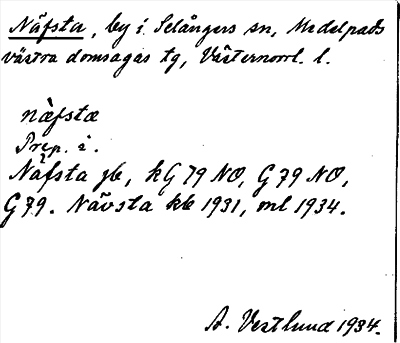 Näfsta, by i Selångers sn, Medelpads
västra domsagas tg, Västernorrl. l.
næ̀fstæ
Prep. i.
Näfsta jb, kG 79 NO, G 79 NO,
G 79. Nävsta kb 1931, ml 1934.
A. Vestlund 1934.